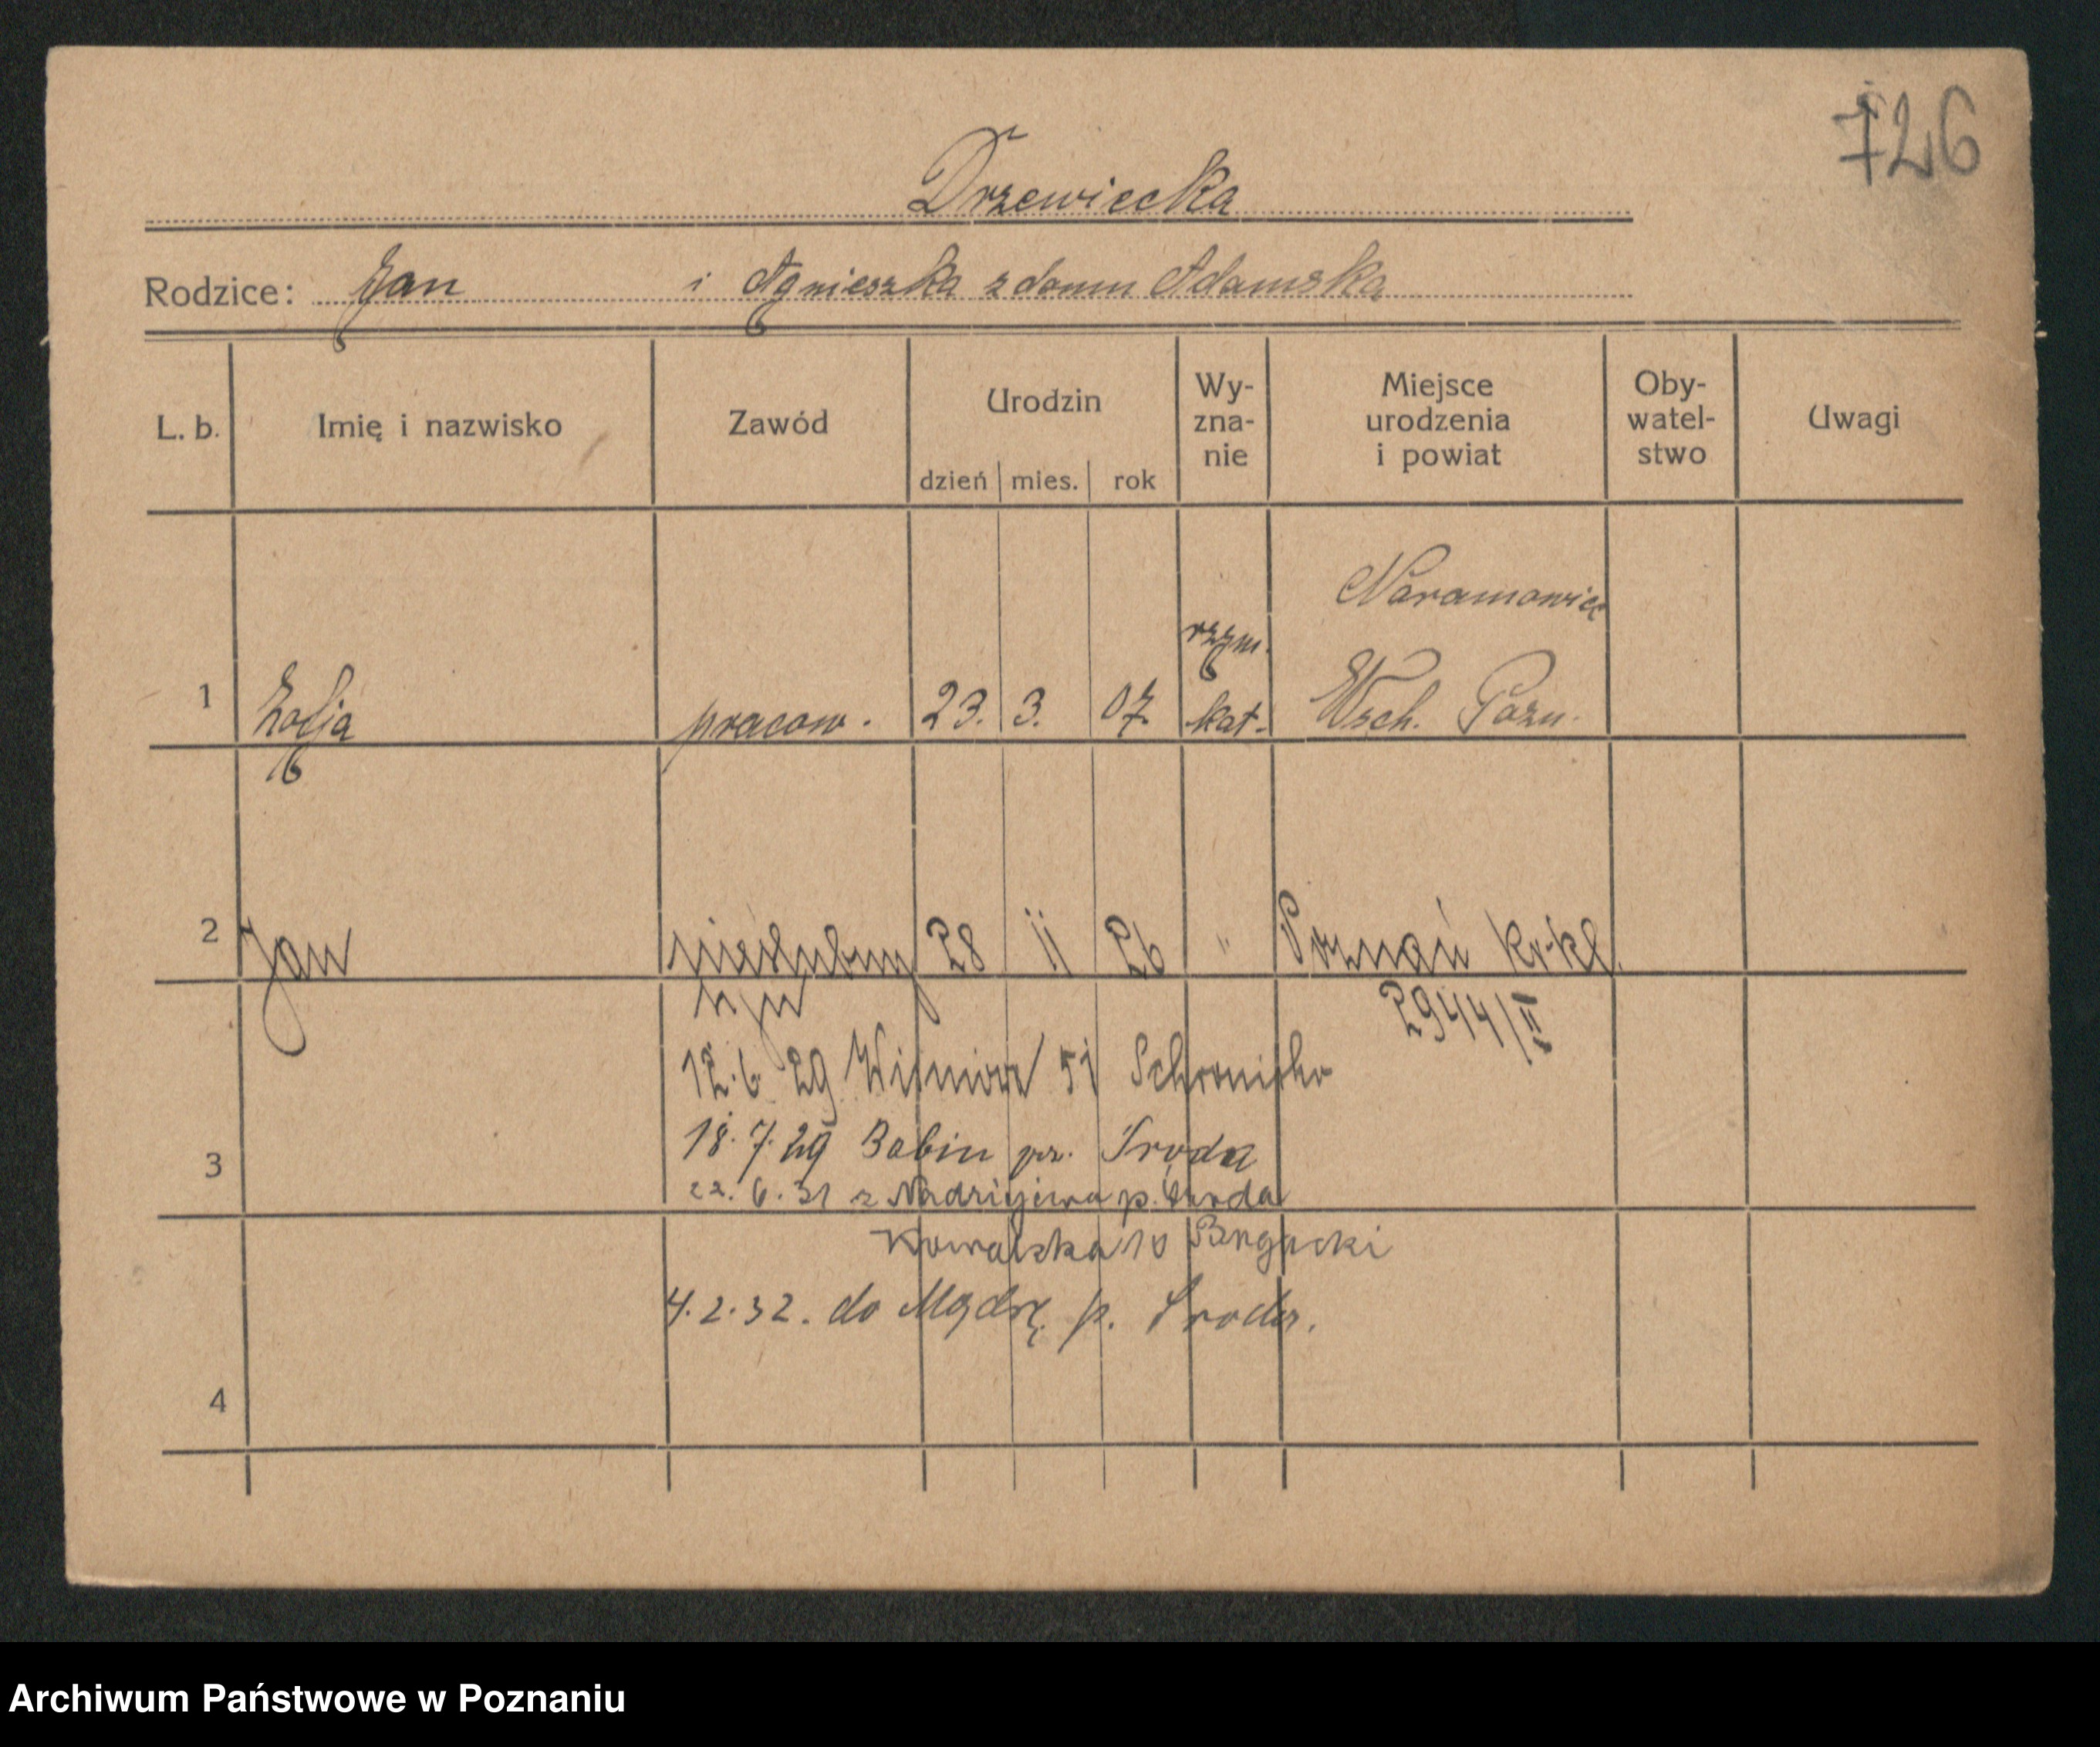 726
Drzewiecka
Rodzice: Jan i Agnieszka z domu Adamska
L. b. Imię i nazwisko Zawód Urodzin dzień mies. rok Wy-zna-nie Miejsce urodzenia i powiat Oby-watel-stwo Uwagi
Naramowice
rzym.
1 Zofja pracow. 23. 3. 07. kat. Wsch. Pozn.
2 Jan nieślubny 28 11 26 " Poznań
syn 2944/II
12.6.29 51 Schronisko
18.7.29 Babin pw. Środa
3
22.6.31 z Nadziejewa p. Środa
Kowalska 10
4.2.32. do Mądrę p. Środa.
4
Archiwum Państwowe w Poznaniu